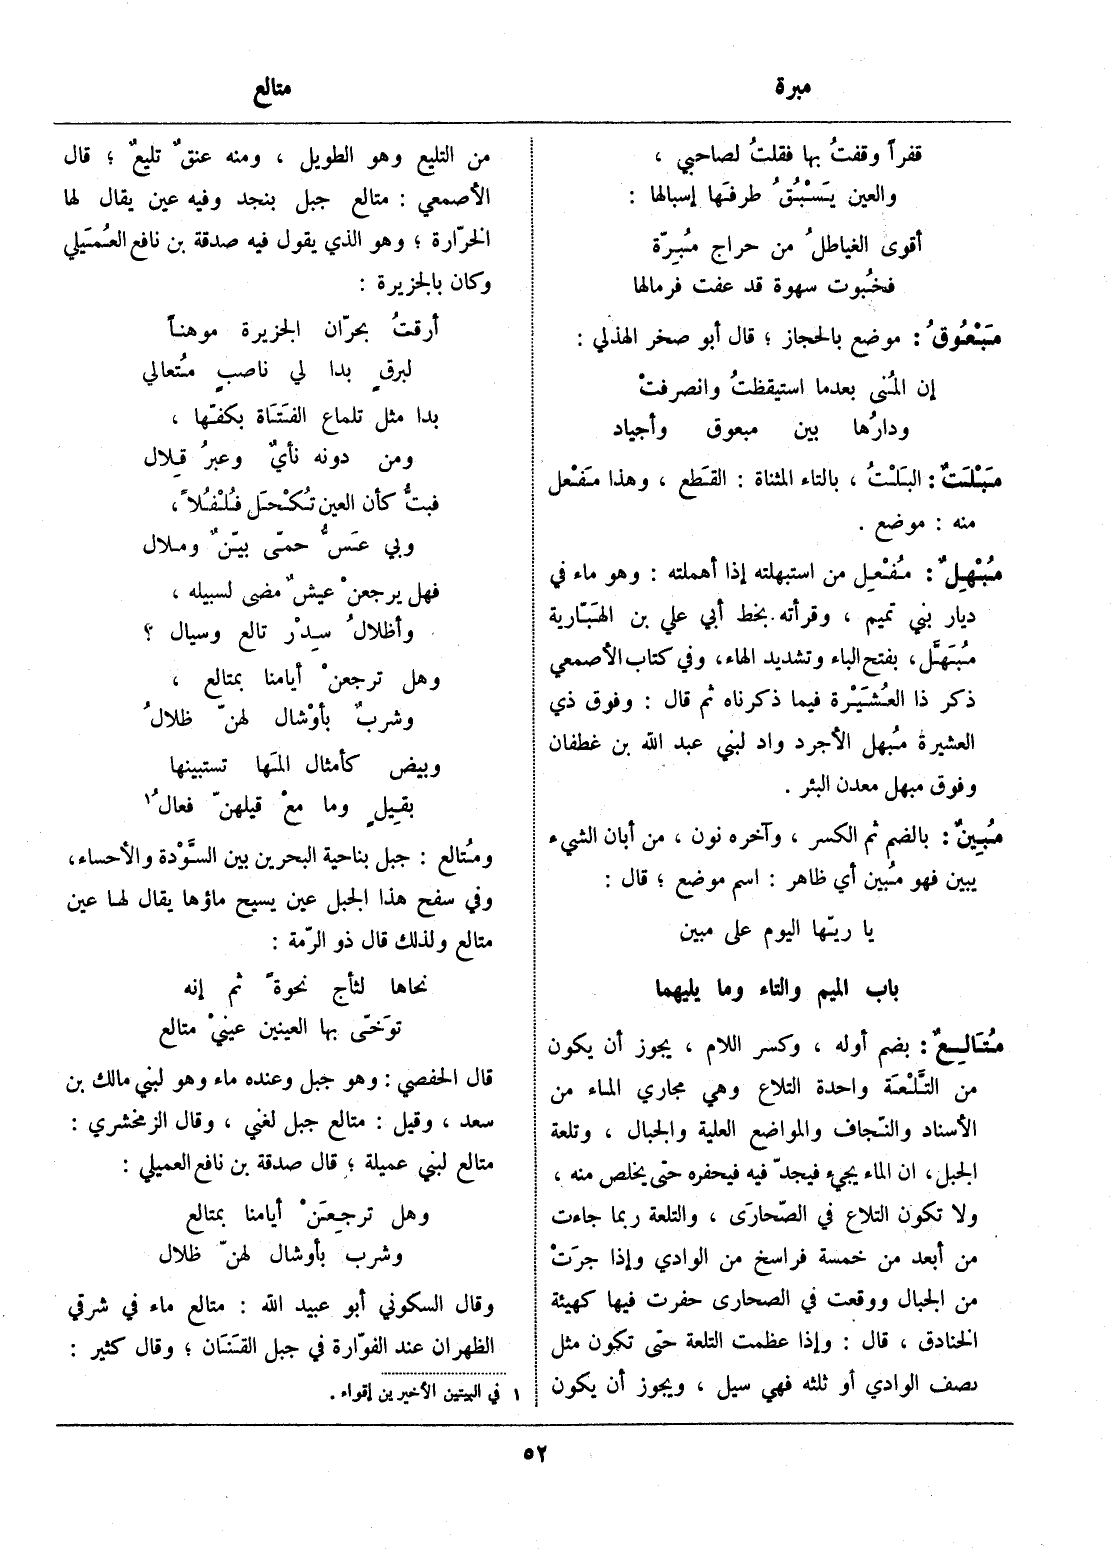 مبرة
متالع
قفراً وقفتُ بها فقلتُ لصاحبي ،
والعين يَسْبُقُ طرفَها إسبالها :
أقوى الغياطلُ من حراج مُبِرّة
فخُبوت سهوة قد عفت فرمالها
مَبْعُوقُ : موضع بالحجاز ؛ قال أبو صخر الهذلي :
إن المُنى بعدما استيقظتُ وانصرفتْ
ودارُها بين مبعوق وأجياد
مَبْلَتٌ : البَلْتُ ، بالتاء المثناة : القَطع ، وهذا مَفْعل
منه : موضع .
مُبْهِلٌ : مُفْعِل من استبهلته إذا أهملته : وهو ماء في
ديار بني تميم ، وقرأته بخط أبي علي بن الهَبّارية
مُبَهَّل ، بفتح الباء وتشديد الهاء ، وفي كتاب الأصمعي
ذكر ذا العُشَيْرة فيما ذكرناه ثم قال : وفوق ذي
العشيرة مُبهل الأجرد واد لبني عبد الله بن غطفان
وفوق مبهل معدن البئر .
مُبِينٌ : بالضم ثم الكسر ، وآخره نون ، من أبان الشيء
يبين فهو مُبين أي ظاهر : اسم موضع ؛ قال :
يا ريّها اليوم على مبين
باب الميم والتاء وما يليهما
مُتَالِعٌ : بضم أوله ، وكسر اللام ، يجوز أن يكون
من التَّلْعَة واحدة التلاع وهي مجاري الماء من
الأسناد والنّجاف والمواضع العلية والجبال ، وتلعة
الجبل ، ان الماء يجيء فيجدّ فيه فيحفره حتى يخلص منه ،
ولا تكون التلاع في الصّحارَى ، والتلعة ربما جاءت
من أبعد من خمسة فراسخ من الوادي وإذا جرَتْ
من الجبال ووقعت في الصحارى حفرت فيها كهيئة
الخنادق ، قال : وإذا عظمت التلعة حتى تكون مثل
نصف الوادي أو ثلثه فهي سيل ، ويجوز أن يكون
من التليع وهو الطويل ، ومنه عنقٌ تليعٌ ؛ قال
الأصمعي : متالع جبل بنجد وفيه عين يقال لها
الخرّارة ؛ وهو الذي يقول فيه صدقة بن نافع العُمَيلي
وكان بالجزيرة :
أرقتُ بحرّان الجزيرة موهناً
لبرقٍ بدا لي ناصبٍ مُتعالي
بدا مثل تلماع الفَتَاة بكفّها ،
ومن دونه نأيٌ وعبرُ قِلال
فبتُّ كأن العين تُكْحَل فُلْفُلاً ،
وبي عَسُّ حمّى بيّنٌ ومَلال
فهل يرجعنْ عيشٌ مضى لسبيله ،
وأظلالُ سِدْر تالع وسيال ؟
وهل ترجعنْ أيامنا بمتالع ،
وشربٌ بأوْشال لهنّ ظلالُ
وبيض كأمثال المَها تستبينها
بقيلٍ وما معْ قيلهنّ فعالُ١
ومُتالع : جبل بناحية البحرين بين السَّوْدة والأحساء ،
وفي سفح هذا الجبل عين يسيح ماؤها يقال لها عين
متالع ولذلك قال ذو الرّمة :
نحاها لثأج نحوةً ثم إنه
توَخّى بها العينين عينيْ متالع
قال الحفصي : وهو جبل وعنده ماء وهو لبني مالك بن
سعد ، وقيل : متالع جبل لغني ، وقال الزمخشري :
متالع لبني عميلة ؛ قال صدقة بن نافع العميلي :
وهل ترجعَنْ أيامنا بمتالع
وشرب بأوشال لهنّ ظلال
وقال السكوني أبو عبيد الله : متالع ماء في شرقي
الظهران عند الفوّارة في جبل القَنَان ؛ وقال كثير :
١ في البيتين الأخيرين إقواء .
٥٢